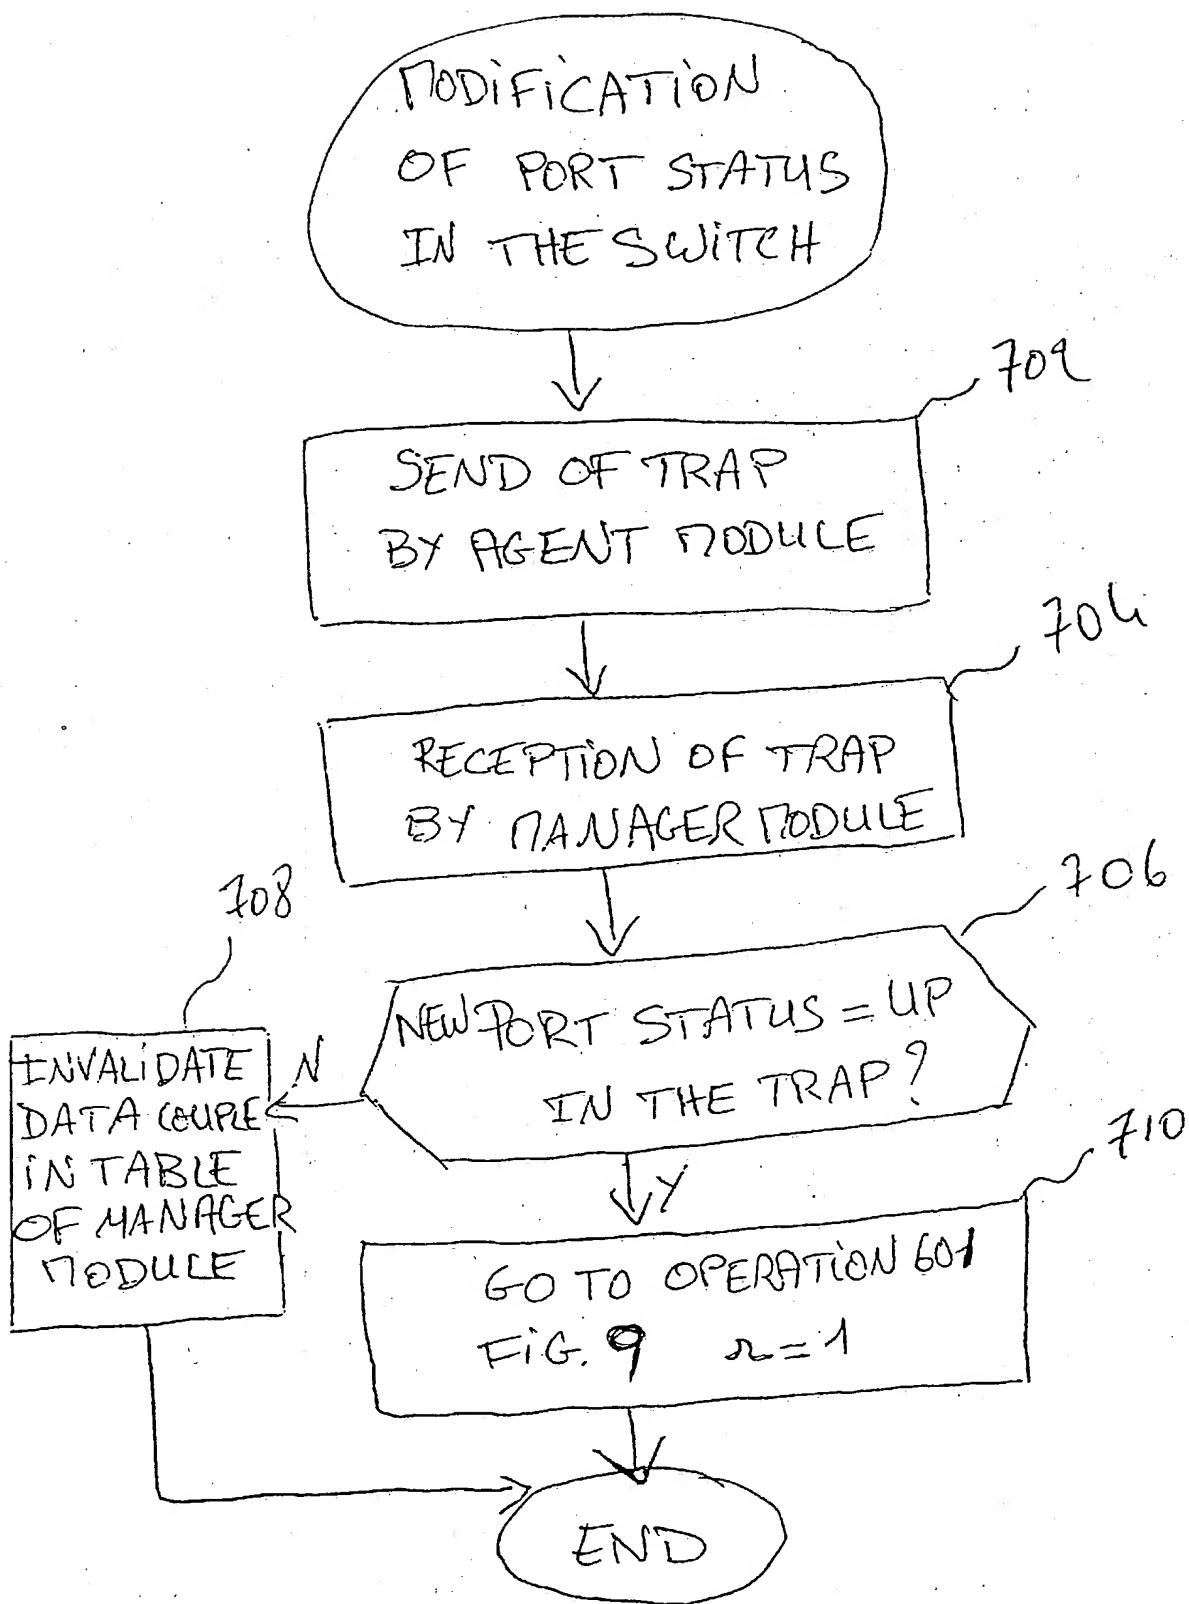 MODIFICATION
OF PORT STATUS
IN THE SWITCH
702
SEND OF TRAP
BY AGENT MODULE
704
RECEPTION OF TRAP
BY MANAGER MODULE
706
NEW PORT STATUS = UP
IN THE TRAP?
708
N
INVALIDATE
DATA COUPLE
IN TABLE
OF MANAGER
MODULE
Y
710
GO TO OPERATION 601
FIG. 9 r=1
END